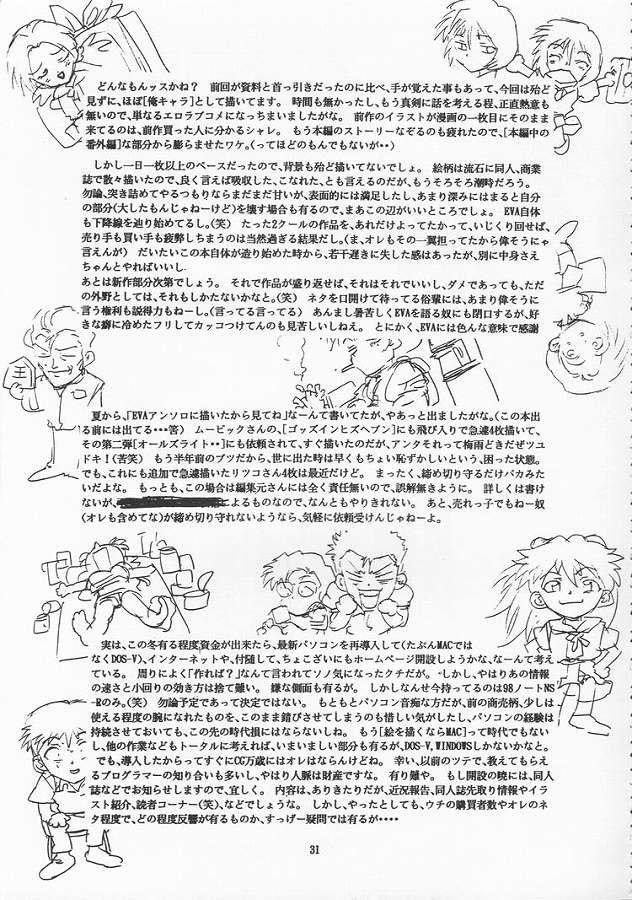 どんなもんッスかね？　前回が資料と首っ引きだったのに比べ、手が覚えた事もあって、今回は殆ど
見ずに、ほぼ[俺キャラ]として描いてます。　時間も無かったし、もう真剣に話を考える程、正直熱意も
無いので、単なるエロラブコメになっちまいましたがな。　前作のイラストが漫画の一枚目にそのまま
来てるのは、前作買った人に分かるシャレ。　もう本編のストーリーなぞるのも疲れたので、[本編中の
番外編]な部分から膨らませたワケ。(ってほどのもんでもないが・・)
しかし一日一枚以上のペースだったので、背景も殆ど描いてないでしょ。　絵柄は流石に同人、商業
誌で散々描いたので、良く言えば吸収した、こなれた、とも言えるのだが、もうそろそろ潮時だろう。
勿論、突き詰めてやるつもりならまだまだ甘いが、表面的には満足したし、あまり深みにはまると自分
の部分(大したもんじゃねーけど)を壊す場合も有るので、まあこの辺がいいところでしょ。　EVA自体
も下降線を辿り始めてるし。(笑)　たった2クールの作品を、あれだけよってたかって、いじくり回せば、
売り手も買い手も疲弊しちまうのは当然過ぎる結果だし。(ま、オレもその一翼担ってたから偉そうにゃ
言えんが)　だいたいこの本自体が造り始めた時から、若干遅きに失した感はあったが、別に中身さえ
ちゃんとやればいいし.
あとは新作部分次第でしょう。　それで作品が盛り返せば、それはそれでいいし、ダメであっても、ただ
の外野としては、それもしかたないかなと。(笑)　ネタを口開けて待ってる俗輩には、あまり偉そうに言
う権利も説得力もねーし。(言ってる言ってる)　あんまし暑苦しくEVAを語る奴にも閉口するが、好
きな癖に冷めたフリしてカッコつけてんのも見苦しいしねえ。　とにかく、EVAには色んな意味で感謝
夏から、「EVAアンソロに描いたから見てね」なーんて書いてたが、やあっと出ましたがな。(この本出
る前には出てる・・・筈)　ムービックさんの、[ゴッズインヒズヘブン]にも飛び入りで急遽4枚描いて、
その第二弾[オールズライト・・]にも依頼されて、すぐ描いたのだが、アンタそれって梅雨どきだぜツユ
ドキ！(苦笑)　もう半年前のブツだから、世に出た時は早くもちょい恥ずかしいという、困った状態。
でも、これにも追加で急遽描いたリツコさん4枚は最近だけど。　まったく、締め切り守るだけバカみた
いだよな。　もっとも、この場合は編集元さんには全く責任無いので、誤解無きように。　詳しくは書け
ないが、によるものなので、なんともやりきれない。　あと、売れっ子でもねー奴
(オレも含めてな)が締め切り守れないようなら、気軽に依頼受けんじゃねーよ。
実は、この冬有る程度資金が出来たら、最新パソコンを再導入して(たぶんMACでは
なくDOS-V)、インターネットや、付随して、ちょこざいにもホームページ開設しようかな、なーんて考え
ている。　周りによく「作れば？」なんて言われてソノ気になったクチだが。・しかし、やはりあの情報
の速さと小回りの効き方は捨て難い。　嫌な側面も有るが。　しかしなんせ今持ってるのは98ノートNS
-Rのみ。(笑)　勿論予定であって決定ではない。　もともとパソコン音痴な方だが、前の商売柄、少しは
使える程度の腕になれたものを、このまま錆びさせてしまうのも惜しい気がしたし、パソコンの経験は
持続させておいても、この先の時代損にはならないしね。　もう[絵を描くならMAC]って時代でもない
し、他の作業などもトータルに考えれば、いまいましい部分も有るが、DOS-V、WINDOWSしかないかなと。
でも、導入したからってすぐにCG万歳にはオレはならんけどね。　幸い、以前のツテで、教えてもらえ
るプログラマーの知り合いも多いし、やはり人脈は財産ですな。　有り難や。　もし開設の暁には、同人
誌などでお知らせしますので、宜しく。　内容は、ありきたりだが、近況報告、同人誌先取り情報やイラ
スト紹介、読者コーナー(笑)、などでしょうな。　しかし、やったとしても、ウチの購買者数やオレのネ
タ程度で、どの程度反響が有るものか、すっげー疑問では有るが・・・・
31